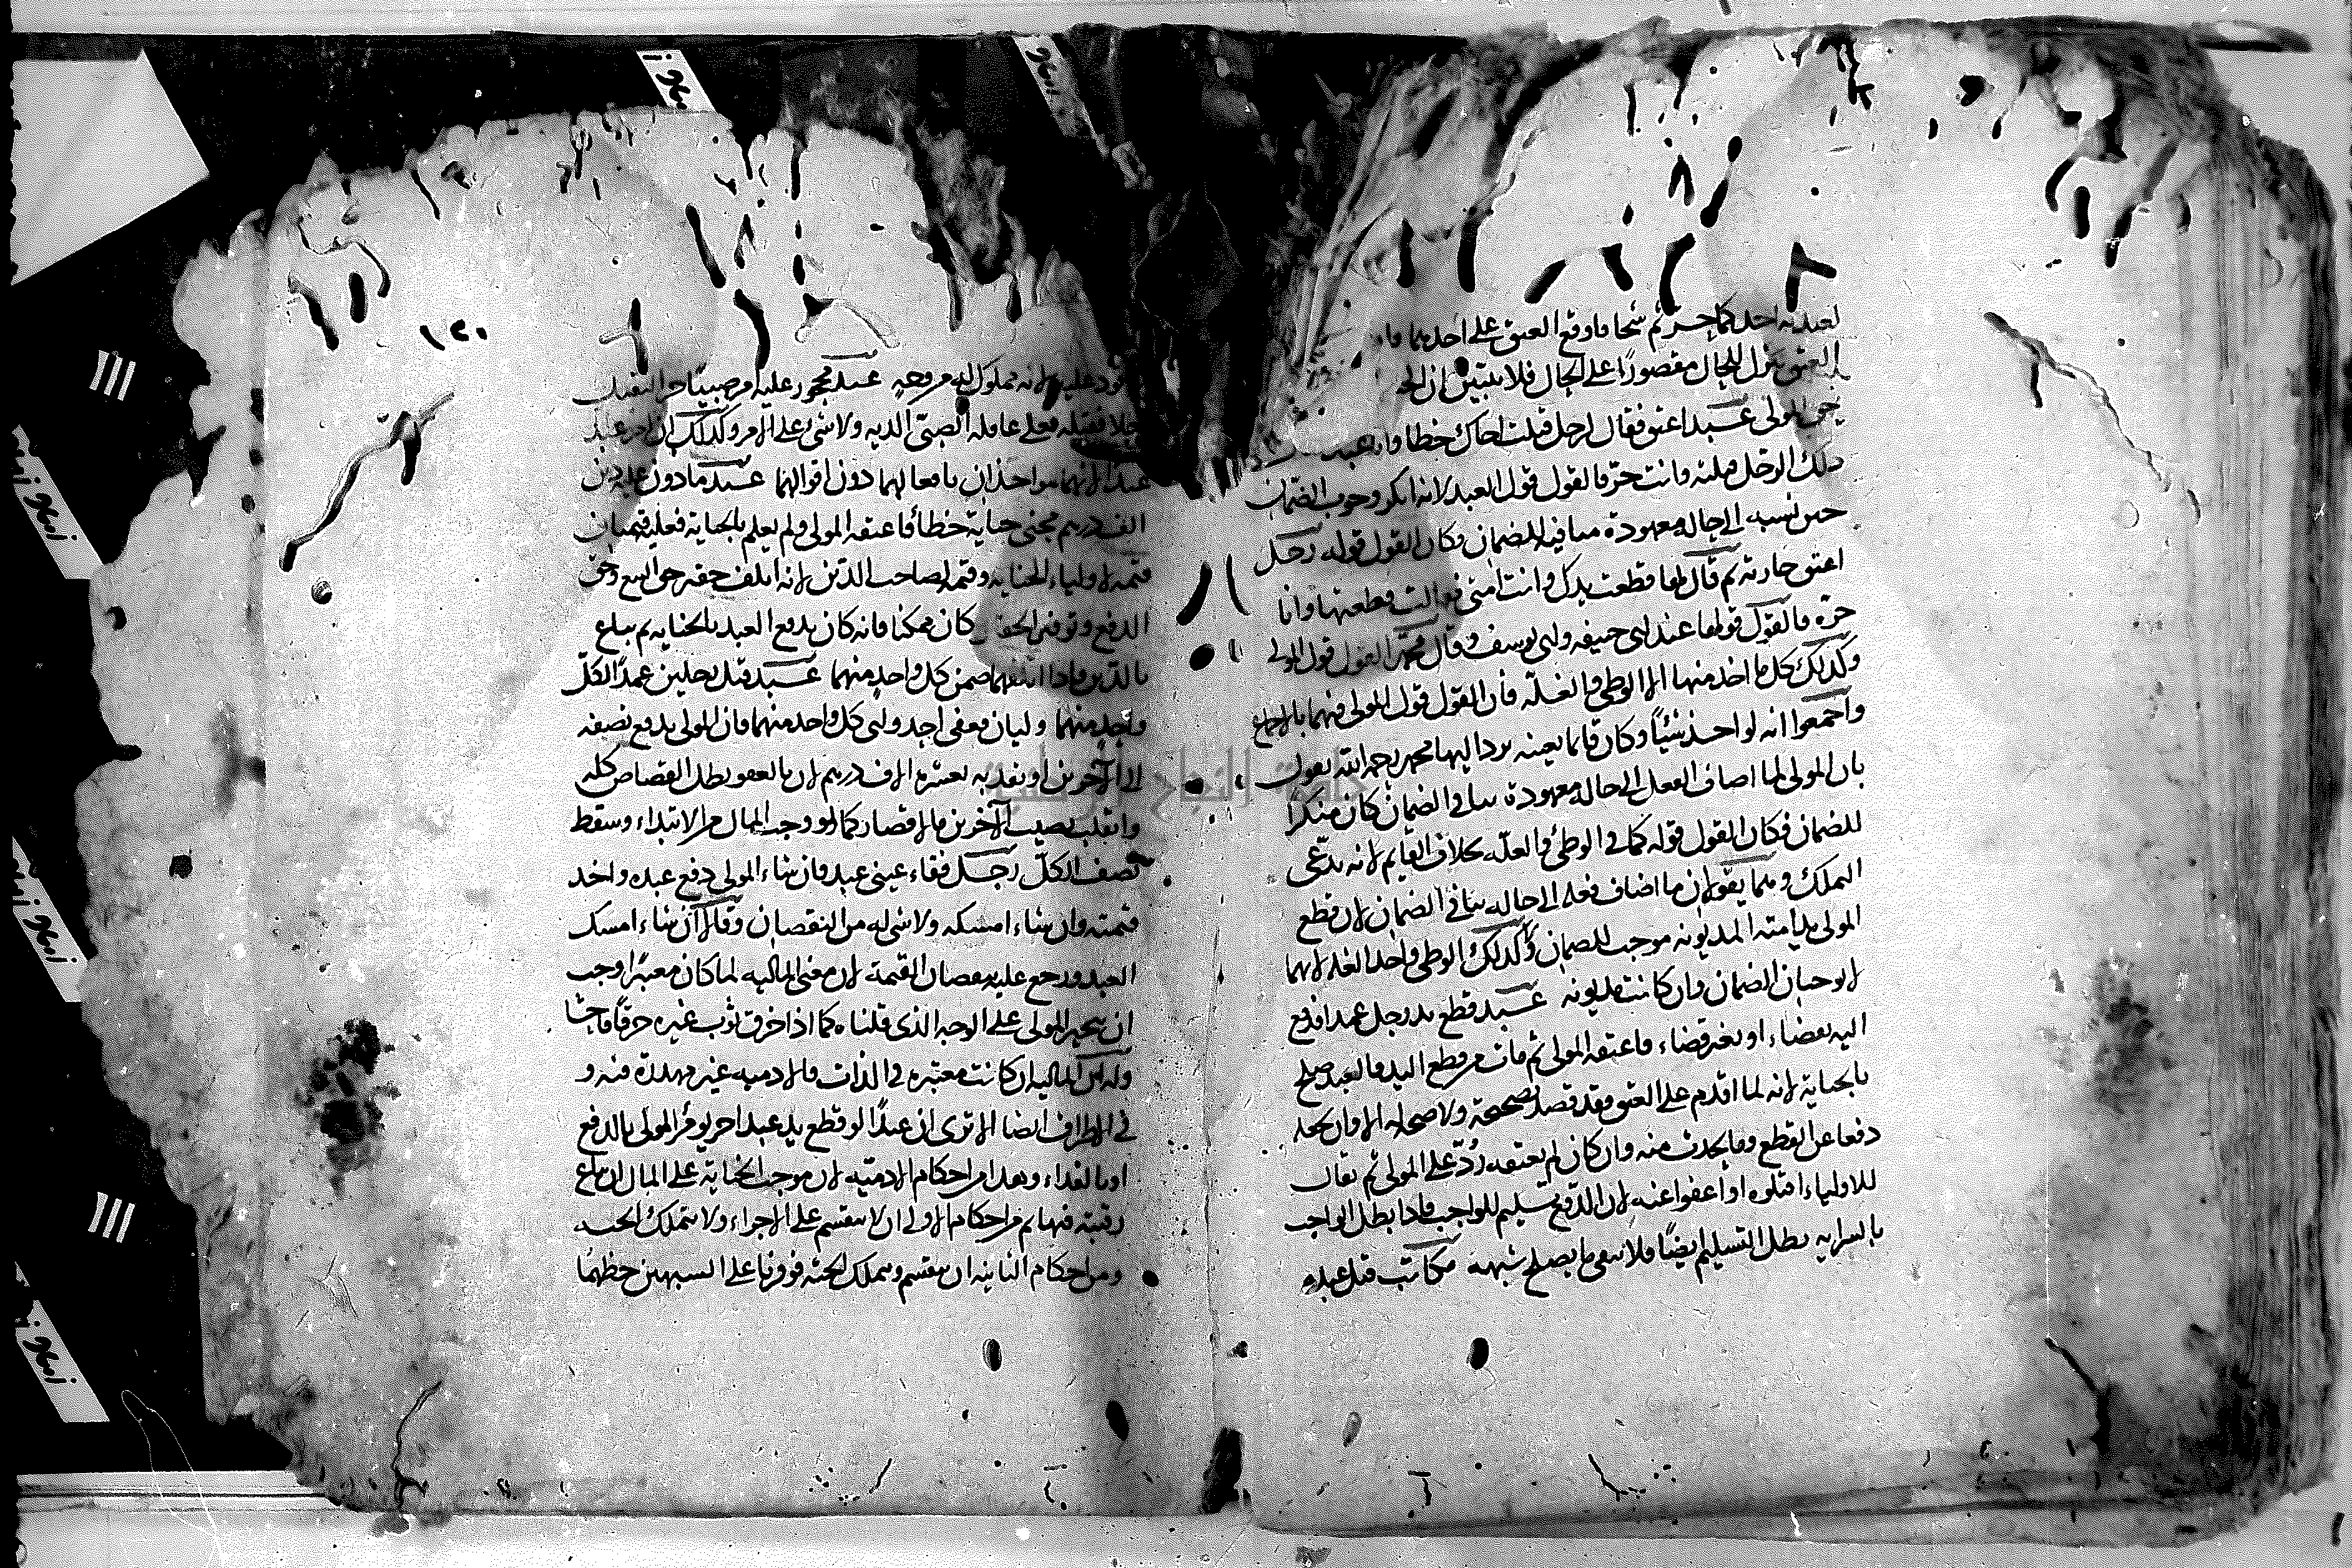 لعبديه احدكما حر ثم شجا فاوقع العتق على احدهما
العتق ينزل للحال مقصورا على الحال فلا يتبين ان
المولى عبد اعتق فقال لرجل قتلت اخاك خطا وانا عبد
ذلك الرجل قتلته وانت حر فالقول قول العبد لانه انكر وجوب الضمان
حين نسبه الى حالة معهودة منافية للضمان فكان القول قوله رجل
اعتق جارية ثم قال لها قطعت يدك وانت امتي فقالت قطعتها وانا
حرة فالقول قولها عند ابي حنيفة وابي يوسف وقال محمد القول قول المولى
وكذلك كل ما اخذ منها الا الوطئ والغلة فان القول قول المولى فيهما بالاجماع
واجمعوا انه لو اخذ شيئا وكان قائما بعينه يردا اليها محمد رحمه الله يقول
بان المولى لما اضاف الفعل الى حالة معهودة ينافي الضمان كان منكرا
للضمان فكان القول قوله كما في الوطئ والغلة بخلاف القايم لانه يدعي
التملك وهما يقولان ما اضاف فعله الى حالة ينافي الضمان لان قطع
المولى يد امته المديونه موجب للضمان وكذلك الوطئ واخذ الغلة لانهما
لا يوجبان الضمان وان كانت مديونه عبد قطع يد رجل عمدا فدفع
اليه بقضاء او بغير قضاء فاعتقه المولى ثم مات من قطع اليد فالعبد صلح
بالجناية لانه لما اقدم على العتق فقد قصد تصحيحه ولا صحة له الا وان يجعله
دفعا عن القطع وما يحدث منه وان كان لم يعتقه رد على المولى ثم يقال
للاولياء اقتلوه او اعفوا عنه لان الدفع تسليم للواجب فاذا بطل الواجب
بالسراية بطل التسليم ايضا فلا يبقى ما يصلح شبهة مكاتب قتل عبده
١٢٠
لانه مملوك عبد محجور عليه امر صبيا حرا
فقتله فعلى عاقلة الصبي الدية ولا شئ على الامر وكذلك ان امر عبد
عبدا لانهما مواخذان بافعالهما دون اقوالهما عبد مادون عليه دين
الف درهم جنى جناية خطا فاعتقه المولى ولم يعلم بالجناية فعليه قيمتان
قيمة لاولياء الجناية وقيمة لصاحب الدين لانه اتلف حقين حق البيع وحق
الدفع وتوفير الحقين كان ممكنا فانه كان يدفع العبد بالجناية ثم يباع
بالدين فاذا اتلفهما ضمن كل واحد منهما عبد قتل رجلين عمدا لكل
واحد منهما وليان فعفى احد وليي كل واحد منهما فان المولى يدفع نصفه
الى الآخرين او يفديه بعشرة الاف درهم لان بالعفو بطل القصاص كله
وانقلب نصيب الآخرين مالا فصار كما لو وجب المال من الابتداء وسقط
نصف الكل رجل فقاء عيني عبد فان شاء المولى دفع عبده واخذ
قيمته وان شاء امسكه ولا شئ له من النقصان وقالا ان شاء امسك
العبد ورجع عليه بنقصان القيمة لان معنى المالية لما كان معتبرا وجب
ان يتخير المولى على الوجه الذي قلناه كما اذا خرق ثوب غيره خرقا فاحشا
وله ان المالية ان كانت معتبرة في الذات فالادمية غير مهدرة فيه و
في الاطراف ايضا الا ترى ان عبدا لو قطع يد عبد اخر يومر المولى بالدفع
او بالفداء وهذا من احكام الادمية لان موجب الجناية على المال ان تباع
رقبته فيها ثم من احكام الاولى ان لا ينقسم على الاجزاء ولا يتملك الجثة
ومن احكام الثانية ان ينقسم ويتملك الجثة فوفرنا على الشبهين حظهما